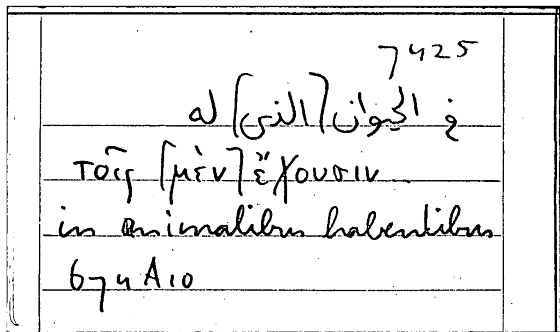 7425
في الحيوان [الذي] له
τοῖς [μὲν] ἔχουσιν
in animalibus habentibus
674 A10